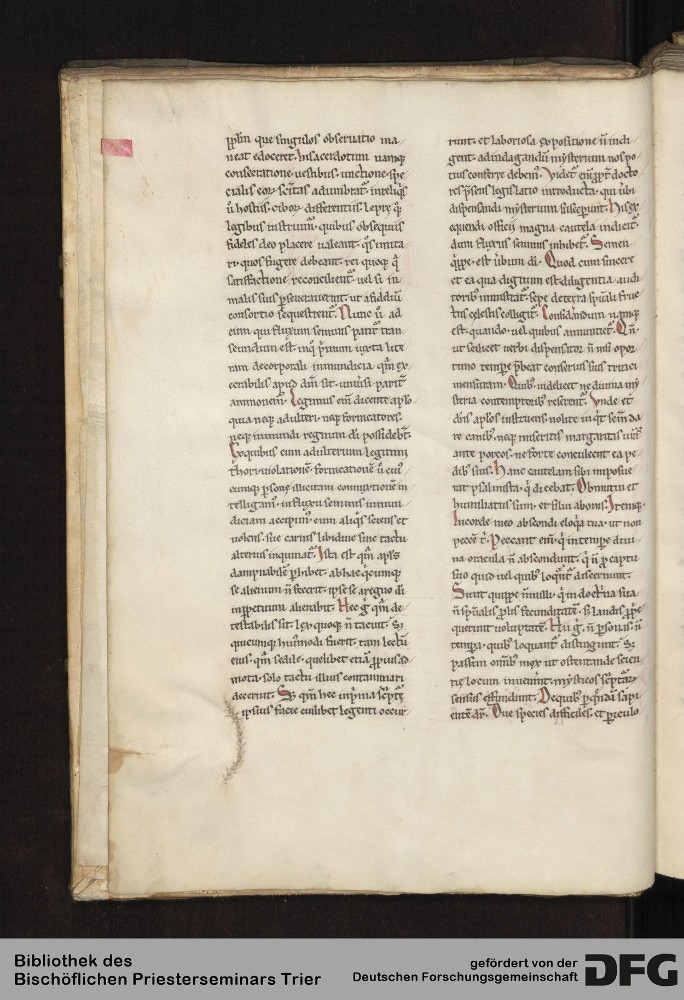 pp̄lm que singulos obseruatio ma
neat edoceret. In sacerdotum namq;
consecratione. uestibus. unctione. spe
cialis eoꝝ sc̄itas adumbrat̄. in reliq̄s
u̅ hostiis. ciboꝝ differentiis. lepre q;
legibus instruim̄. quibus obsequiis
fideles deo placere ualeant. q̄s imita
ri. quos fugere debeant. rei quoq; q̄
satisfactione reconcilient̄. uel si in
malis suis p̱seuerauerint. ut a fidēliū
consortio sequestrent̄. Nunc u̅ ad
eum qui fluxum seminis patit̄ tran
seundum est. inq̄ p̱mum iuxta litte
ram de corporali inmundicia. q̄m ex
ecrabilis apud dm̄ sit. uniuersi. parit̄
ammonem̄. Legimus eni dicente ap̄lo
quia neq; adulteri. neq; fornicatores.
neq; inmundi regnum di possidebt̄.
Ex quibus eum adulterium legitimi
thori uiolatione. fornicatione u̅ cui
cumq; p̱sone illicitam commixtione in
telligam̄. in fluxu seminis inmun
diciam accipim̄. cum aliq̄s sciens et
uolens. sue carnis libidine siue tactu
alterius inquinat̄. Ista est q̄m ap̄ls
dampnabile p̱hibet. ab hac q̄cumq;
se alienum n̄ fecerit. ipse se a regno di
inp̱petuum alienabit. Hec ḡ q̄m de
testabilis sit. lex quoq; n̄ tacuit. S;
quicumq; hui̓modi fuerit. tam lectū
eius. q̄m sedile. quelibet etiā p̱prius ad
mota. solo tactu illius contaminari
decernit. S; q̄m hec inp̱ma sc̱ptę
ipsius facie cuilibet legenti occur
runt. et laboriosa expositione n̄ indi
gent. ad indagandū mysterium nos po
tius conferre debem̄. Videt̄ eni p̱pt̄ docto
res p̱sens legislatio introducta. qui u̅bi
dispensandi mysterium susceperunt. His ex
equendi officii magna cautela indicit̄.
dum fluxus seminis inhibet̄. Semen
q̄ppe. est uerbum di. Quod cum sincere
et ea qua dignum est diligentia. audi
torib̓ ministrat̄. sepe dextera sp̄uali fruc
tus celestis colligit̄. Considerandum namq;
est. quando. uel quibus annuntiet̄. Qm̄
ut scilicet uerbi dispensator n̄ nisi opor
tuno tempore p̱beat conseruis suis tritici
mensuram. Quib̓ uidelicet ne diuina my
steria contemptorib̓ referent̄. Vnde et
dn̄s ap̄los instruens. nolite inq̄t sc̄m da
re canib̓. neq; miseritis margaritas uras
ante porcos. ne forte conculcent ea pe
dib̓ suis. Hanc cautelam sibi imposue
rat psalmista. q̄ dicebat. Obmutui et
humiliatus sum. et silui a bonis. Itemq;
In corde meo abscondi eloq̄a tua. ut non
peccē t̄. Peccant eni. q̄ intempe̱ diui
na oracula n̄ abscondunt. q̄ n̄ p̱ captu
suo quid uel quib̓ loq̄nt̄ discernunt.
Sunt quippe n̄nulli. q̄ in doctrina sua
n̄ sp̄ualis p̱lis fecunditatē. s; laudis p̱pe
querunt uoluptatē. Hii ḡ. n̄ p̱sonas. n̄
tempora. quib̓ loquant̄ distingunt. S;
passim omib̓ mox ut ostentande scien
tię locum inuenint. mysticos sc̱pturaꝝ
sensus effundunt. De quib̓ p̱ q̄ndā sapi
entē dr̄. Due species difficiles. et p̱iculo
Bibliothek des
Bischöflichen Priesterseminars Trier
gefördert von der
Deutschen Forschungsgemeinschaft
DFG